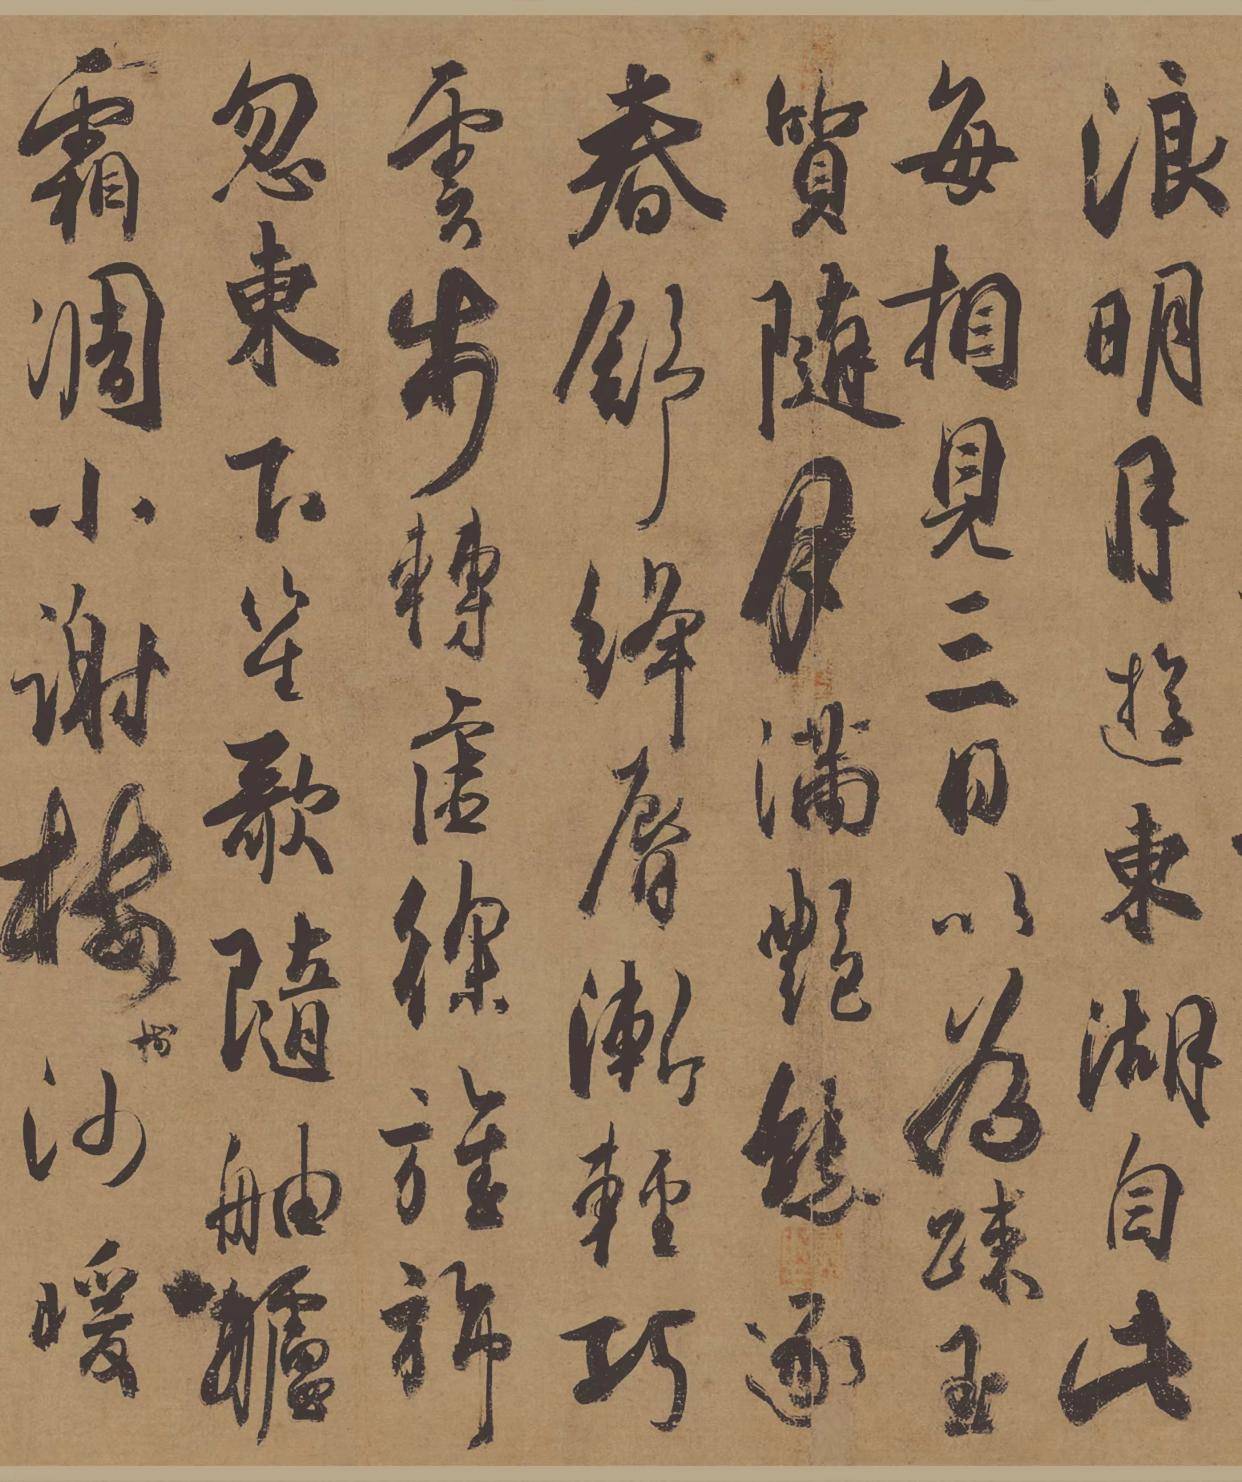 浪明月遊東湖自此
每相見三日以為踈玉
質隨月滿艷態逐
春舒絳脣漸輕巧
雲步轉虛徐旌旆
忽東下笙歌隨舳艫
霜凋小謝樓樹沙暖